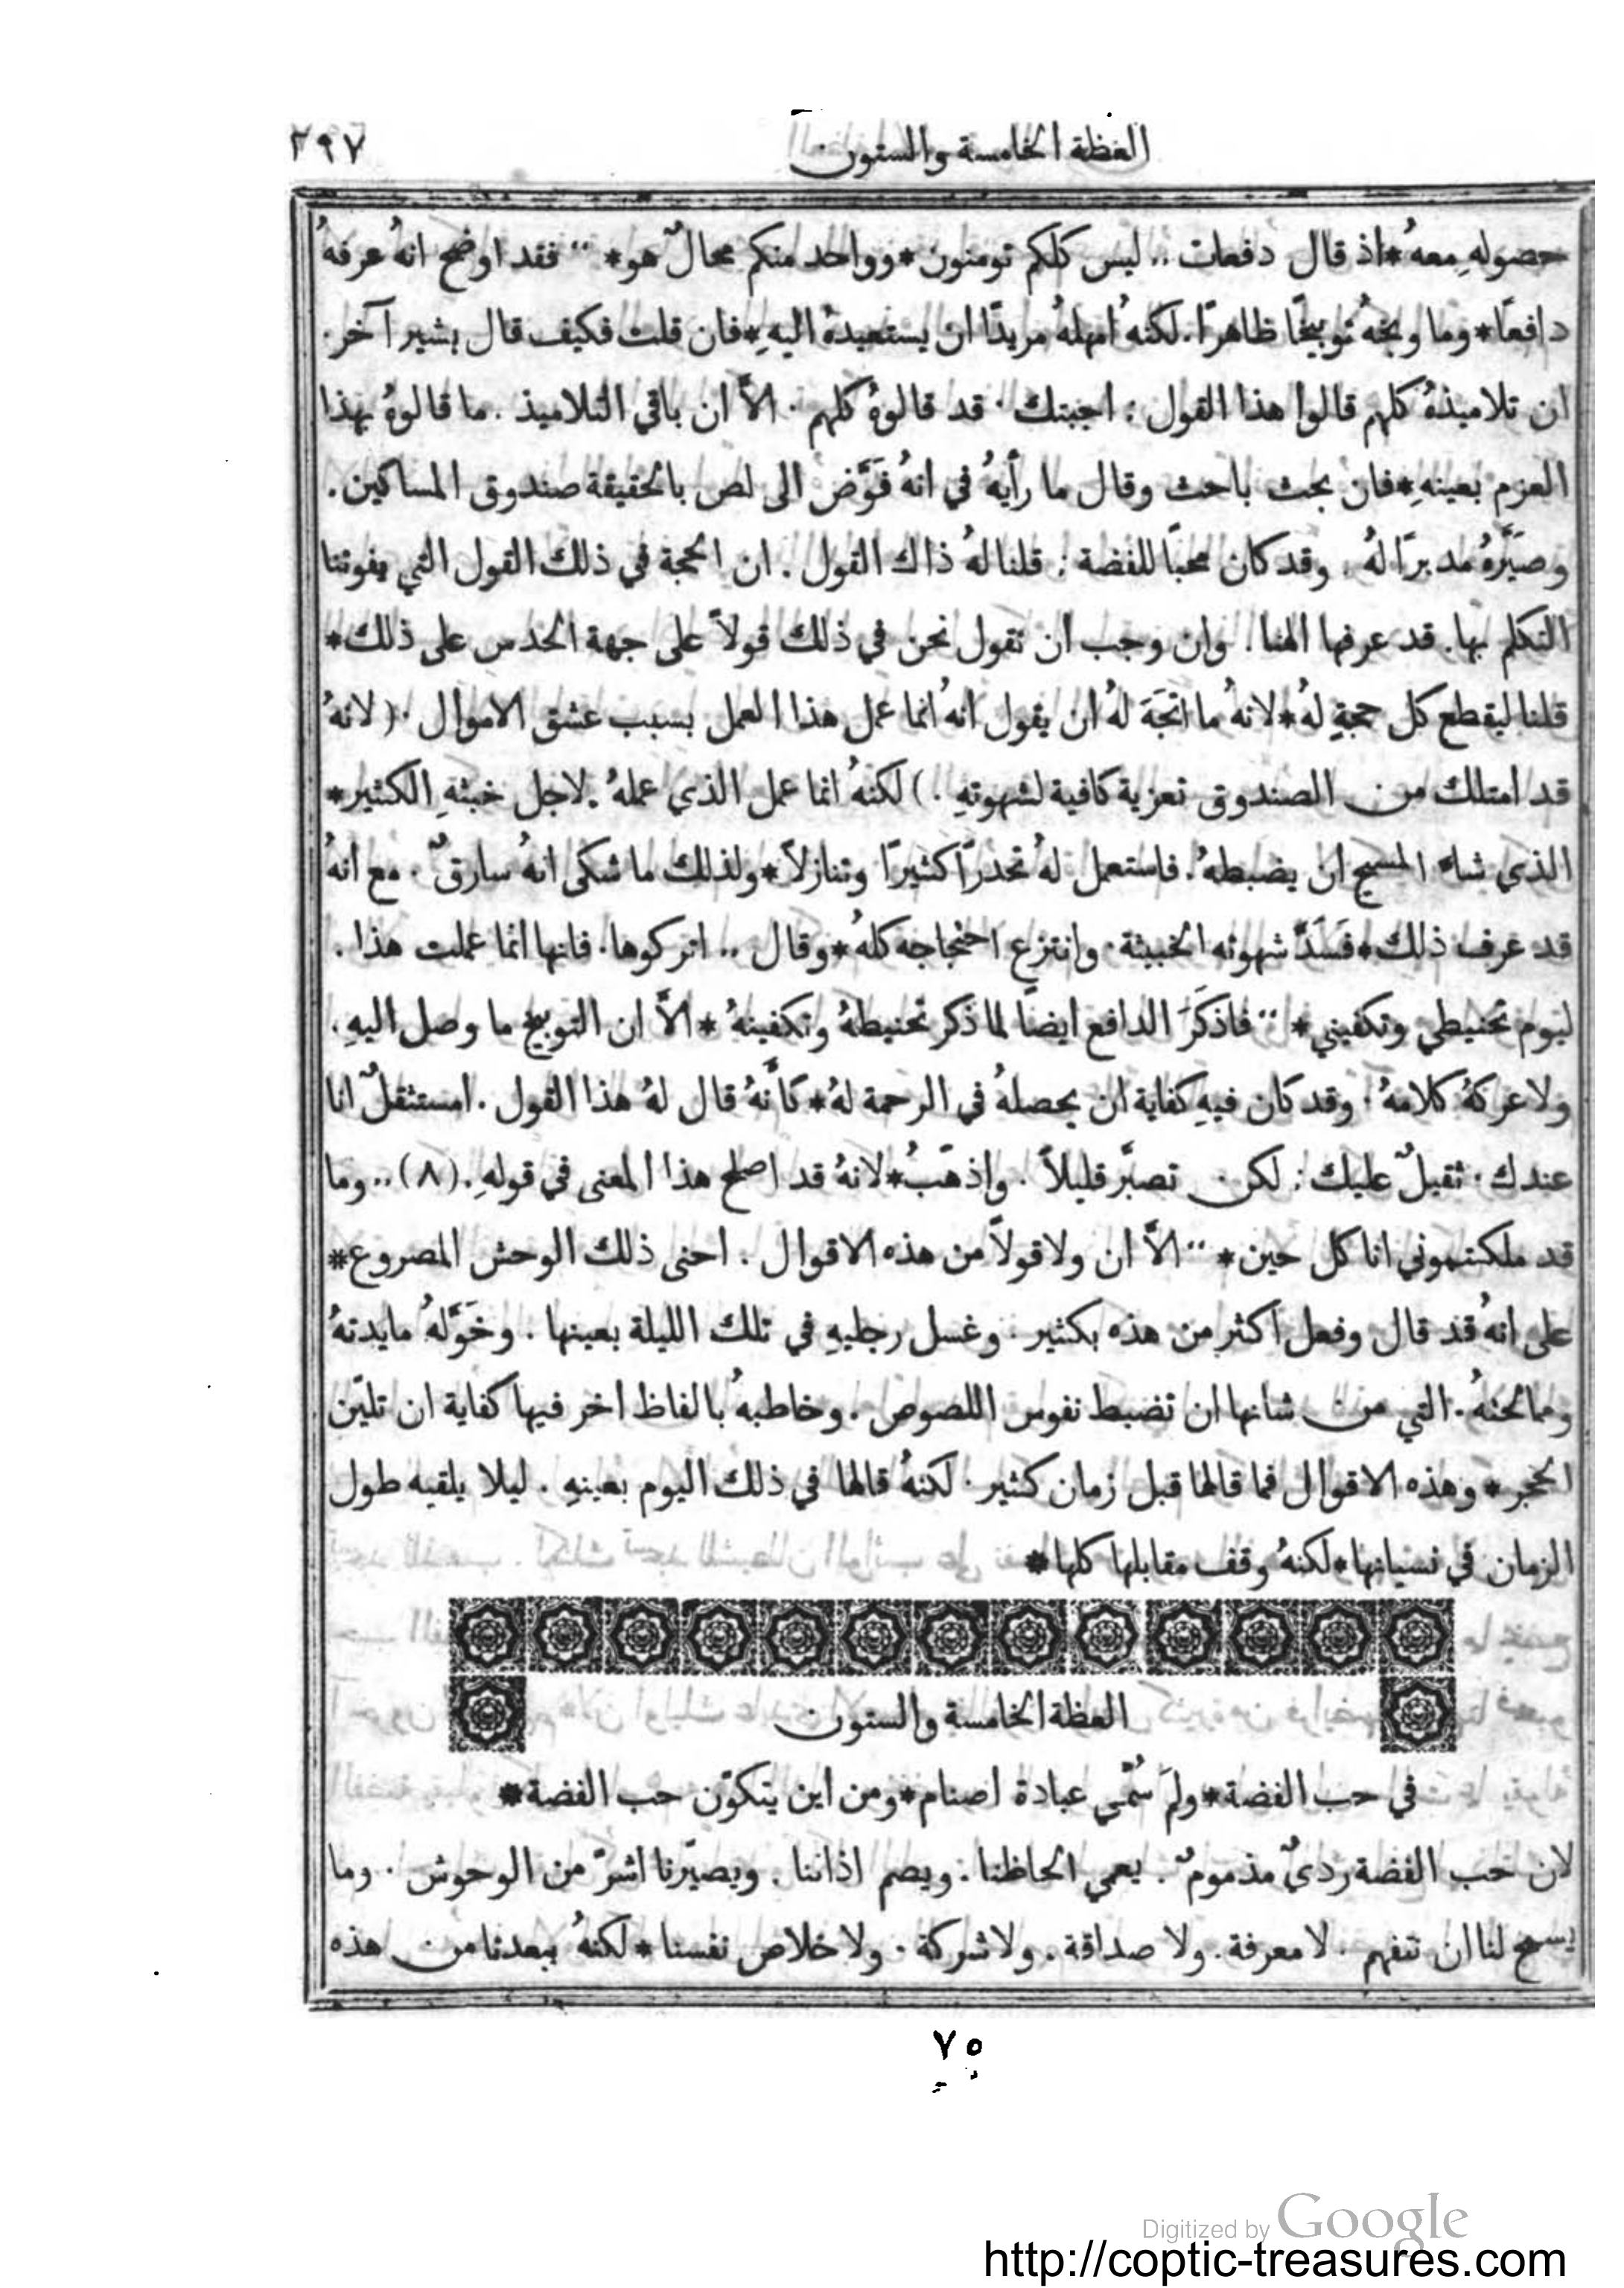 العظة الخامسة والستون
٢٩٧
حصولهِ معهُ * اذ قال دفعات .. ليس كلكم تومنون * وواحد منكم محالٌ هو * ،، فقد اوضح انهُ عرفهُ
دافعًا * وما وبخهُ توبيخًا ظاهرًا. لكنهُ امهلهُ مريدًا ان يستعيدهُ اليهِ * فان قلت فكيف قال بشير آخر.
ان تلاميذهُ كلهم قالوا هذا القول : اجبتك . قد قالوهُ كلهم . الاَّ ان باقي التلاميذ . ما قالوهُ بهذا
العزم بعينهِ * فان بحث باحث وقال ما رأيهُ في انهُ فَوَّض الى لص بالحقيقة صندوق المساكين.
وصيَّرهُ مدبرًا لهُ . وقد كان محبًا للفضة : قلنا لهُ ذاك القول . ان الحجة في ذلك القول التي يفوتنا
التكلم بها. قد عرفها الهنا. وان وجب ان نقول نحن في ذلك قولاً على جهة الحدس على ذلك *
قلنا ليقطع كل حجةٍ لهُ * لانهُ ما اتجَهَ لهُ ان يقول انهُ انما عمل هذا العمل بسبب عشق الاموال . ( لانهُ
قد امتلك من الصندوق تعزية كافية لشهوتهِ .) لكنهُ انما عمل الذي عملهُ. لاجل خبثهِ الكثير *
الذي شاء المسيح ان يضبطهُ. فاستعمل لهُ تحدرًا كثيرًا وتنازلاً * ولذلك ما شكى انهُ سارقٌ . مع انهُ
قد عرف ذلك * فَسَدَّ شهوته الخبيثة. وانتزع احتجاجه كلهُ * وقال .. اتركوها. فانها انما عملت هذا .
ليوم تحنيطي وتكفيني * ،، فاذكَرَ الدافع ايضًا لما ذكر تحنيطهُ وتكفينهُ * الاَّ ان التوبيخ ما وصل اليهِ.
ولا عركهُ كلامهُ . وقد كان فيهِ كفاية ان يحصلهُ في الرحمة لهُ * كأَنَّهُ قال لهُ هذا القول . امستثقلٌ انا
عندك . ثقيلٌ عليك : لكن تصبَّر قليلاً . واذهَبُ * لانهُ قد اصلح هذا المعنى في قولهِ. (٨) .. وما
قد ملكتموني انا كل حين * ،، الاَّ ان ولا قولاً من هذه الاقوال . احنى ذلك الوحش المصروع *
على انهُ قد قال وفعل اكثر من هذه بكثير . وغسل رجليهِ في تلك الليلة بعينها . وخَوَّلهُ مايدتهُ
ومالحتهُ . التي من شانها ان تضبط نفوس اللصوص . وخاطبهُ بالفاظ اخر فيها كفاية ان تليّن
الحجر * وهذه الاقوال فما قالها قبل زمان كثير . لكنهُ قالها في ذلك اليوم بعينهِ . ليلا يلقيه طول
الزمان في نسيانها * لكنهُ وقف مقابلها كلها *
العظة الخامسة والستون
في حب الفضة * ولمَ سُمّي عبادة اصنام * ومن اين يتكوّن حب الفضة *
لان حب الفضة رديٌ مذمومٌ . يعمي الحاظنا . ويصم اذاننا . ويصيّرنا اشرّ من الوحوش . وما
يسمح لنا ان نتفهم . لا معرفة. ولا صداقة. ولا شركة . ولا خلاص نفسنا * لكنهُ يبعدنا من هذه
٧٥
Digitized by Google
http://coptic-treasures.com